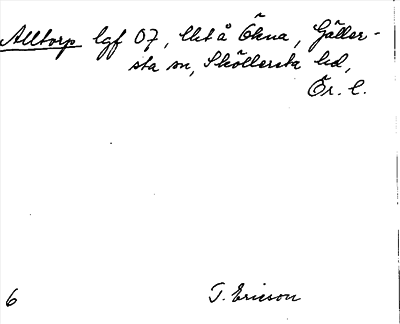 Alltorp lgf 07, lht å Ökna, Gäller-
sta sn, Sköllersta hd,
Ör. l.
6 T. Ericson